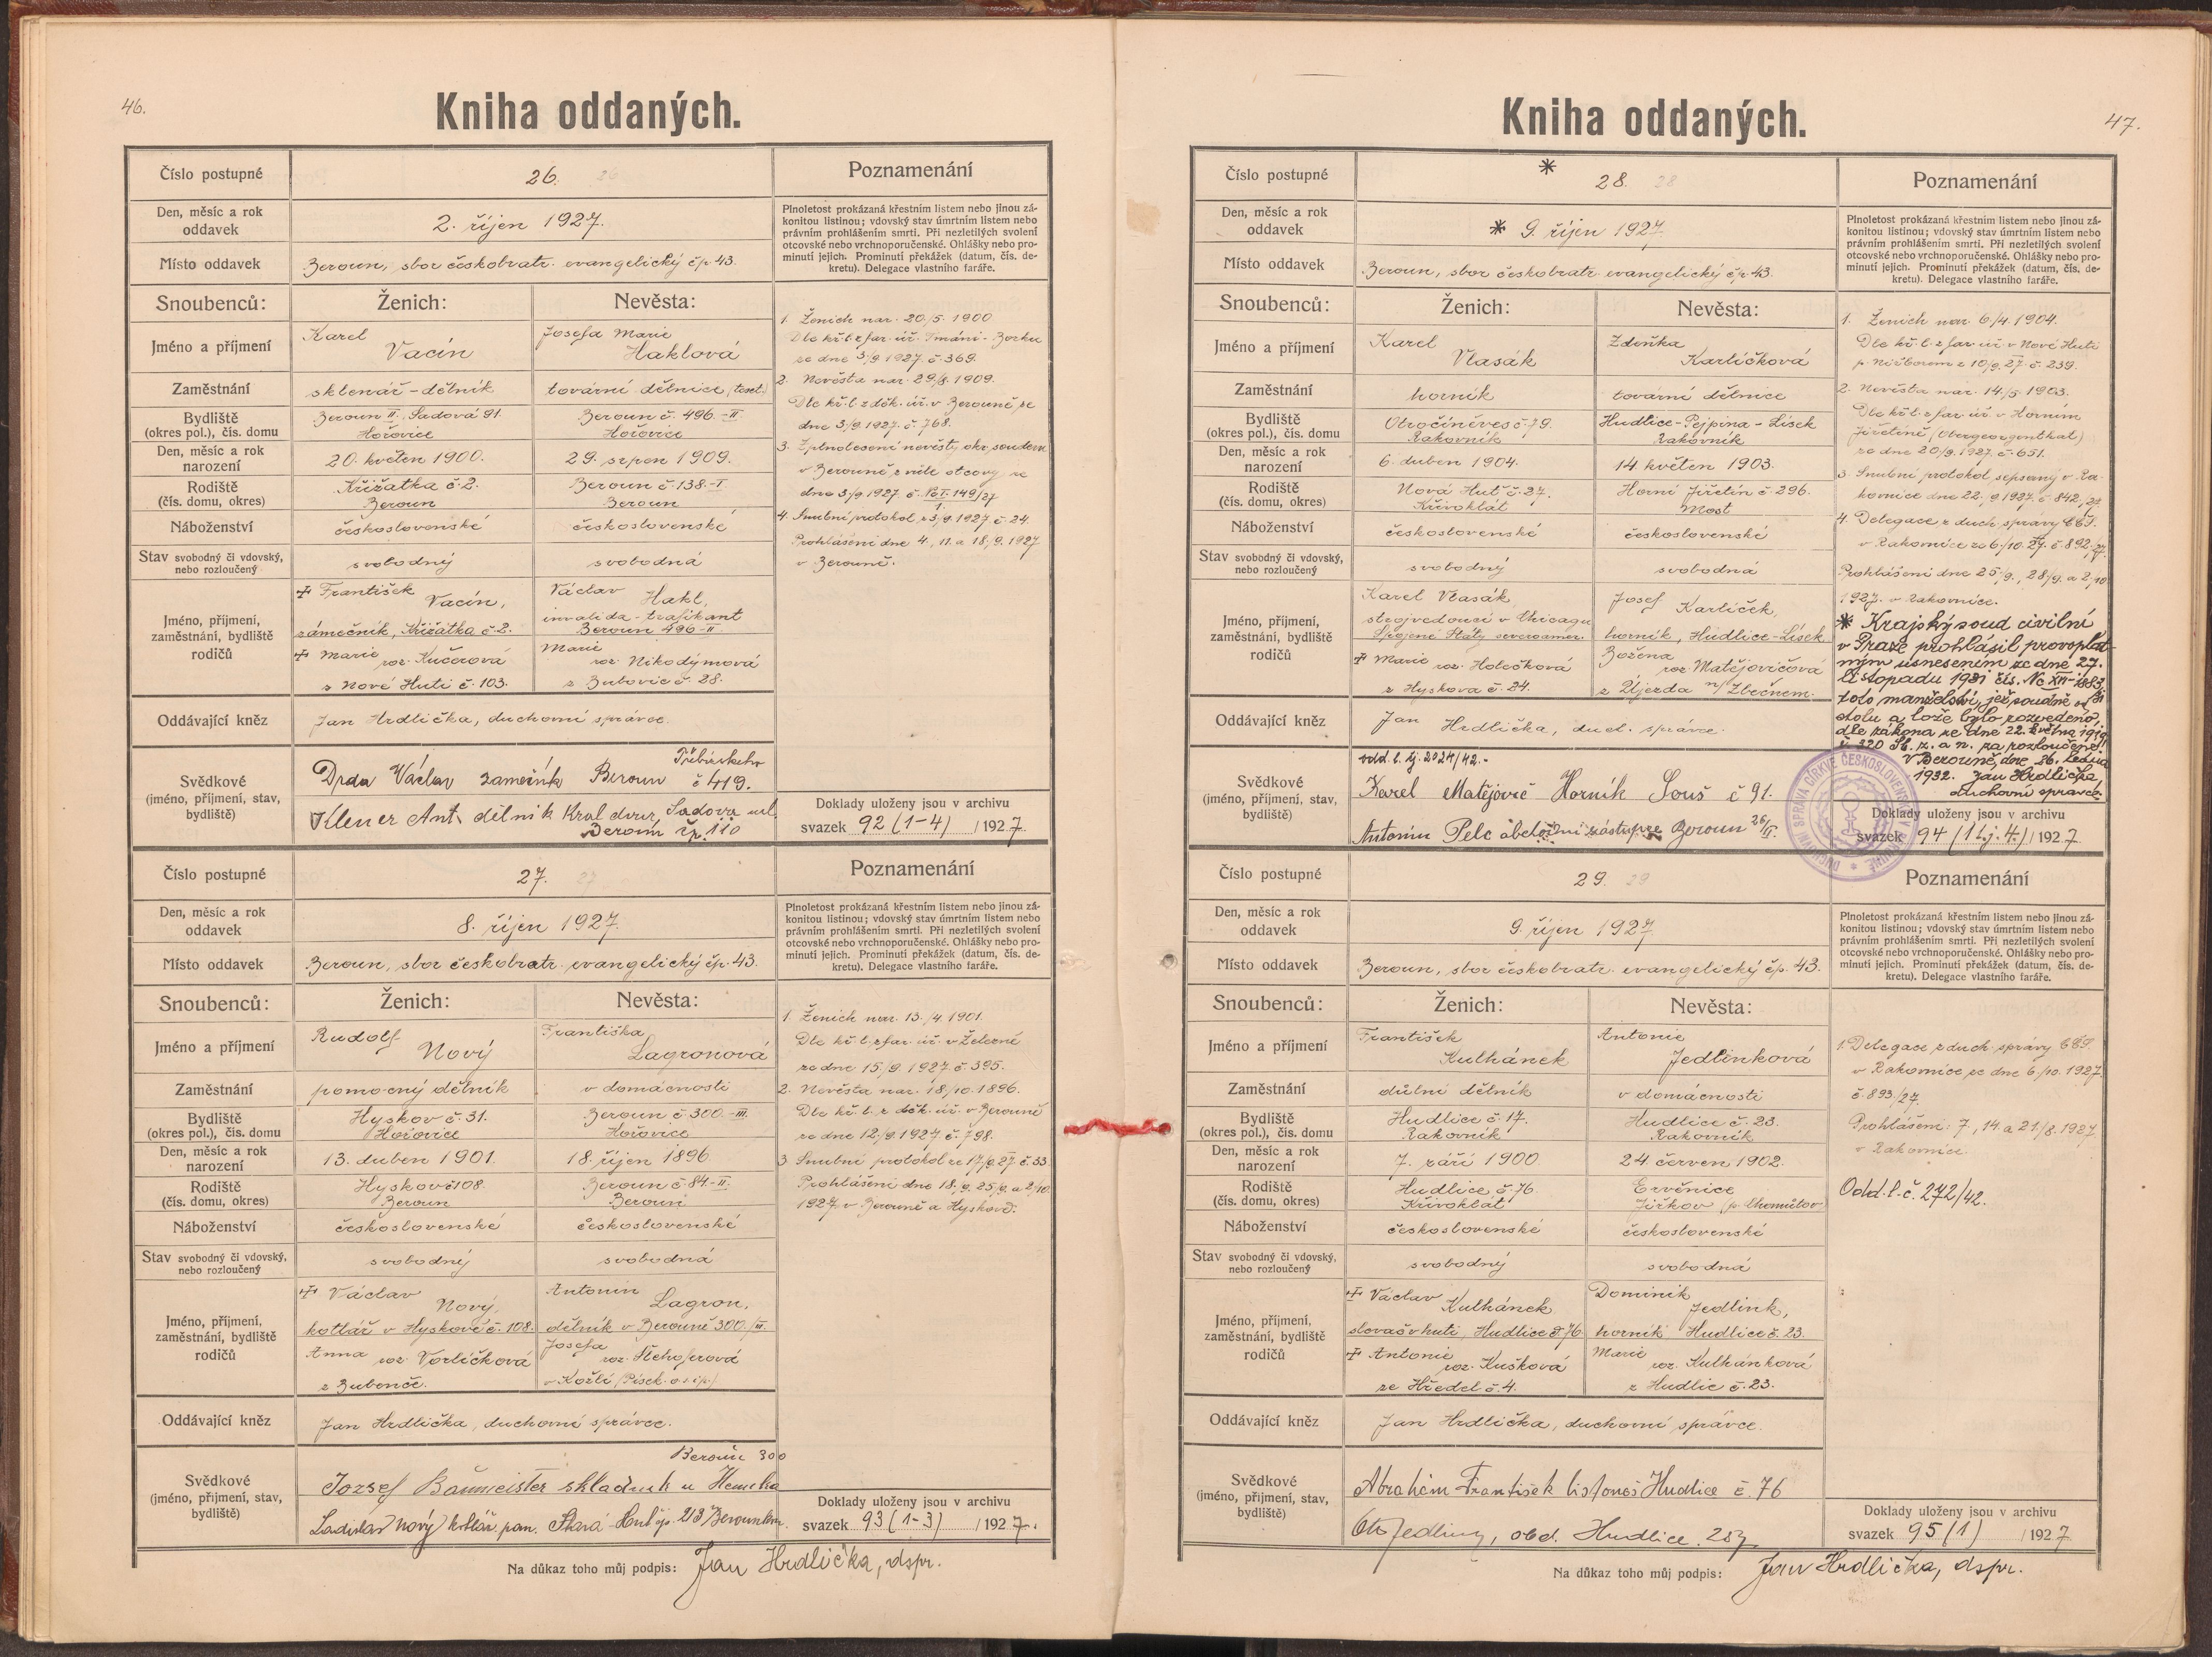 46.
Kniha oddaných.
Číslo postupné 26. 26
Poznamenání
Den, měsíc a rok oddavek 2. říjen 1927.
Místo oddavek Beroun, sbor českobratr. evangelický čp. 43.
Plnoletost prokázaná křestním listem nebo jinou zá-
konitou listinou; vdovský stav úmrtním listem nebo
právním prohlášením smrti. Při nezletilých svolení
otcovské nebo vrchnoporučenské. Ohlášky nebo pro-
minutí jejich. Prominutí překážek (datum, čís. de-
kretu). Delegace vlastního faráře.
Snoubenců: Ženich: Nevěsta:
Jméno a příjmení
Karel Josefa Marie
Vacín Haklová
Zaměstnání sklenář-dělník tovární dělnice (text.)
Bydliště Beroun II. Sadová 91. Beroun č. 496.-II
(okres pol.), čís. domu Hořovice Hořovice
Den, měsíc a rok narození 20. květen 1900. 29. srpen 1909.
Rodiště Křižatka č. 2. Beroun č. 138.-I
(čís. domu, okres) Beroun Beroun
Náboženství československé československé
Stav svobodný či vdovský, nebo rozloučený svobodný svobodná
Jméno, příjmení,
zaměstnání, bydliště
rodičů
František Václav
Vacín, Hakl,
invalida-trafikant
zámečník, Křižatka č. 2. Beroun 496-II
Marie Marie
roz. Kučerová roz. Nikodýmová
z Nové Huti č. 103. z Bubovic č. 28.
Oddávající kněz Jan Hrdlička, duchovní správce.
Svědkové
(jméno, příjmení, stav,
bydliště)
Drda Václav zámečník Beroun č 419.
Klener Ant. dělník Kral dvur, Sadova ul.
Beroun čp. 110
1. Ženich nar. 20./5. 1900
Dle kř. l. z far. úř. Tmáni-Borku
ze dne 3./9. 1927 č. 369.
2. Nevěsta nar. 29./8. 1909.
Dle kř. l. z děk. úř. v Berouně ze
dne 3./9. 1927. č. 768.
3. Zplnoletnění nevěsty okr. soudem
v Berouně z vůle otcovy ze
dne 3./9 1927 č. 149/27
4. Snubní protokol z 3./9. 1927 č. 24.
Prohlášení dne 4., 11. a 18./9. 1927
v Berouně.
Doklady uloženy jsou v archivu
svazek 92 (1-4) /1927.
Číslo postupné 27. 27
Poznamenání
Den, měsíc a rok oddavek 8. říjen 1927.
Místo oddavek Beroun, sbor českobratr. evangelický čp. 43.
Plnoletost prokázaná křestním listem nebo jinou zá-
konitou listinou; vdovský stav úmrtním listem nebo
právním prohlášením smrti. Při nezletilých svolení
otcovské nebo vrchnoporučenské. Ohlášky nebo pro-
minutí jejich. Prominutí překážek (datum, čís. de-
kretu). Delegace vlastního faráře.
Snoubenců: Ženich: Nevěsta:
Jméno a příjmení
Rudolf Františka
Nový Lagronová
Zaměstnání pomocný dělník v domácnosti
Bydliště Hyskov č. 31. Beroun č 300.-III.
(okres pol.), čís. domu Hořovice Hořovice
Den, měsíc a rok narození 13. duben 1901. 18. říjen 1896.
Rodiště Hyskov č 108. Beroun č. 84-II.
(čís. domu, okres) Beroun Beroun
Náboženství československé československé
Stav svobodný či vdovský, nebo rozloučený svobodný svobodná
Jméno, příjmení,
zaměstnání, bydliště
rodičů
Václav Antonín
Nový, Lagron,
kotlář v Hyskově č. 108. dělník v Berouně 300./III.
Anna Josefa
roz. Vorlíčková roz. Řehoferová
z Bubenče. v Kožlí (Písek.)
Oddávající kněz Jan Hrdlička, duchovní správce.
Svědkové
(jméno, příjmení, stav,
bydliště)
Beroun 300
Jozsef Baumeister skladník u
Ladislav Nový kotlář. pan. Stará-Huť čp. 213
1. Ženich nar. 13./4. 1901.
Dle kř. l. z far. úř. v Železné
ze dne 15./9. 1927 č. 395.
2. Nevěsta nar. 18/10. 1896.
Dle kř. l. z děk. úř. v Berouně
ze dne 12./9. 1927 č. 798.
3. Snubní protokol ze 17/9. 27. č. 33.
Prohlášení dne 18./9. 25/9. a 2/10.
1927 v Berouně a Hyskově.
Doklady uloženy jsou v archivu
svazek 93 (1-3) /1927.
Na důkaz toho můj podpis: Jan Hrdlička, dspr.
47.
Kniha oddaných.
*
Číslo postupné 28. 28
Poznamenání
Den, měsíc a rok oddavek * 9. říjen 1927.
Místo oddavek Beroun, sbor českobratr. evangelický čp. 43.
Plnoletost prokázaná křestním listem nebo jinou zá-
konitou listinou; vdovský stav úmrtním listem nebo
právním prohlášením smrti. Při nezletilých svolení
otcovské nebo vrchnoporučenské. Ohlášky nebo pro-
minutí jejich. Prominutí překážek (datum, čís. de-
kretu). Delegace vlastního faráře.
Snoubenců: Ženich: Nevěsta:
Jméno a příjmení
Karel Zdeňka
Vlasák Karlíčková
Zaměstnání horník tovární dělnice
Bydliště Otročiněves č. 79. Hudlice-Pejpina-Lísek
(okres pol.), čís. domu Rakovník Rakovník
Den, měsíc a rok narození 6. duben 1904. 14 květen 1903.
Rodiště Nová Huť č. 27. Horní Jiřetín č. 296.
(čís. domu, okres) Křivoklát Most
Náboženství československé československé
Stav svobodný či vdovský, nebo rozloučený svobodný svobodná
Jméno, příjmení,
zaměstnání, bydliště
rodičů
Karel Vlasák, Josef
strojvedoucí v Chicagu Karlíček,
Spojené Státy severoamer. horník, Hudlice-Lísek
Marie roz. Holečková Božena roz. Matějovičová
z Hyskova č. 24. z Újezda n/ Zbečnem.
Oddávající kněz Jan Hrdlička, duch. správce.
Svědkové
(jméno, příjmení, stav,
bydliště)
odd. l. čj. 2024/42.-
Karel Matějovič Horník Souš č 91.
Antonín Pelc obchodní zástupce Beroun 26/II.
1. Ženich nar. 6./4. 1904.
Dle kř. l. z far. úř. v Nové Huti
p. Nižborem z 10/9. 27. č. 239.
2. Nevěsta nar. 14./5. 1903.
Dle kř. l. z far. úř. v Horním
Jiřetíně (Obergeorgenthal)
ze dne 20/9. 1927. č. 651.
3. Snubní protokol sepsaný v Ra-
kovnice dne 22./9. 1927. č 842/27.
4. Delegace z duch. správy CČS.
v Rakovnice ze 6/10. 27. č. 892/27.
Prohlášení dne 25/9., 28/9. a 2/10
1927. v Rakovnice.
* Krajský soud civilní
v Praze prohlásil provoplat-
ným usnesením ze dne 27.
listopadu 1931 čís. Nc XIV-1883/31
toto manželství, jež soudně od
stolu a lože bylo rozvedeno,
dle zákona ze dne 22. května 1919
č. 320 Sb. z. a n. za rozloučené!
V Berouně, dne 26. ledna
1932. Jan Hrdlička,
duchovní správce.
DUCHOVNÍ SPRÁVA CÍRKVE ČESKOSLOVENSKÉ V BEROUNĚ
Doklady uloženy jsou v archivu
svazek 94 (1 č.j. 4.) /1927.
Číslo postupné 29. 29
Poznamenání
Den, měsíc a rok oddavek 9. říjen 1927
Místo oddavek Beroun, sbor českobratr. evangelický čp. 43.
Plnoletost prokázaná křestním listem nebo jinou zá-
konitou listinou; vdovský stav úmrtním listem nebo
právním prohlášením smrti. Při nezletilých svolení
otcovské nebo vrchnoporučenské. Ohlášky nebo pro-
minutí jejich. Prominutí překážek (datum, čís. de-
kretu). Delegace vlastního faráře.
Snoubenců: Ženich: Nevěsta:
Jméno a příjmení
František Antonie
Kulhánek Jedlinková
Zaměstnání důlní dělník v domácnosti
Bydliště Hudlice č. 17. Hudlice č. 23.
(okres pol.), čís. domu Rakovník Rakovník
Den, měsíc a rok narození 7. září 1900. 24. červen 1902.
Rodiště Hudlice č. 76. Ervěnice
(čís. domu, okres) Křivoklát Jirkov (p. Chomutov)
Náboženství československé československé
Stav svobodný či vdovský, nebo rozloučený svobodný svobodná
Jméno, příjmení,
zaměstnání, bydliště
rodičů
Václav Dominik
Kulhánek Jedlink,
slovač v huti, Hudlice č 76. horník Hudlice č. 23.
Antonie Marie
roz. Kušková roz. Kulhánková
ze Hředel č. 4. z Hudlic č. 23.
Oddávající kněz Jan Hrdlička, duchovní správce.
Svědkové
(jméno, příjmení, stav,
bydliště)
Abrahám František listonoš Hudlice č. 76
Ot. Jedlink, obd. Hudlice. 23
1. Delegace z duch. správy CČS.
v Rakovnice ze dne 6./10. 1927.
č. 893./27.
Prohlášení: 7., 14. a 21./8. 1927.
v Rakovnice.
Odd. l. č. 272/42.
Doklady uloženy jsou v archivu
svazek 95 (1) /1927
Na důkaz toho můj podpis: Jan Hrdlička, dspr.